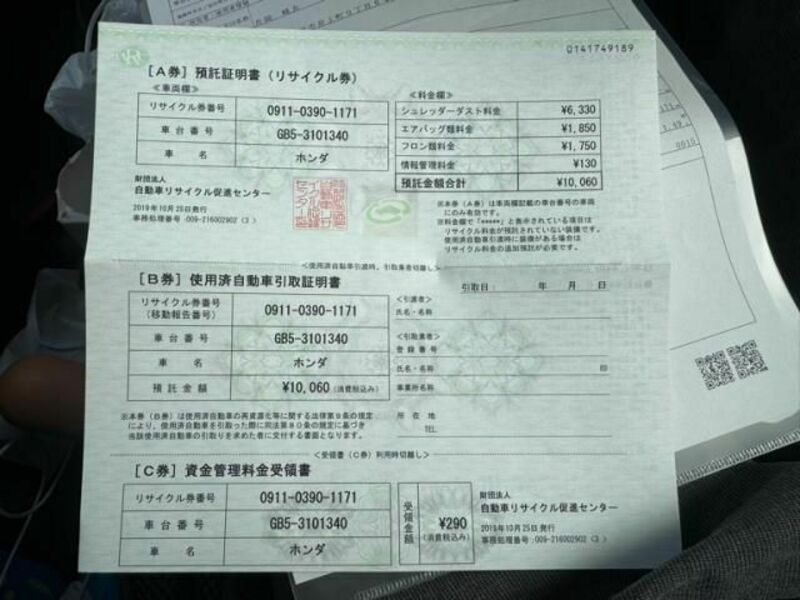 0141749189
[A券] 預託証明書 (リサイクル券)
≪車両欄≫
リサイクル券番号 0911-0390-1171
車台番号 GB5-3101340
車名 ホンダ
≪料金欄≫
シュレッダーダスト料金 ¥6,330
エアバッグ類料金 ¥1,850
フロン類料金 ¥1,750
情報管理料金 ¥130
預託金額合計 ¥10,060
財団法人
自動車リサイクル促進センター
2019年10月25日発行
事務処理番号:009-216002902 (3)
※本券(A券)は車両欄記載の車台番号の車両
にのみ有効です。
※料金欄で「*****」と表示されている項目は
リサイクル料金が預託されていない装備です。
使用済自動車引渡時に装備がある場合は
リサイクル料金の追加預託が必要です。
<使用済自動車引渡時、引取業者切離し>
[B券] 使用済自動車引取証明書
リサイクル券番号
(移動報告番号) 0911-0390-1171
車台番号 GB5-3101340
車名 ホンダ
預託金額 ¥10,060 (消費税込み)
引取日: 年 月 日
<引渡者>
氏名・名称
<引取業者>
登録番号
氏名・名称 ㊞
事業所名称
所在地
TEL
※本券(B券)は使用済自動車の再資源化等に関する法律第9条の規定
により、使用済自動車を引取った際に同法第80条の規定に基づき
当該使用済自動車の引取りを求めた者に交付する書面となります。
<受領書(C券)利用時切離し>
[C券] 資金管理料金受領書
リサイクル券番号 0911-0390-1171
車台番号 GB5-3101340
車名 ホンダ
受領金額 ¥290
(消費税込み)
財団法人
自動車リサイクル促進センター
2019年10月25日発行
事務処理番号:009-216002902 (3)